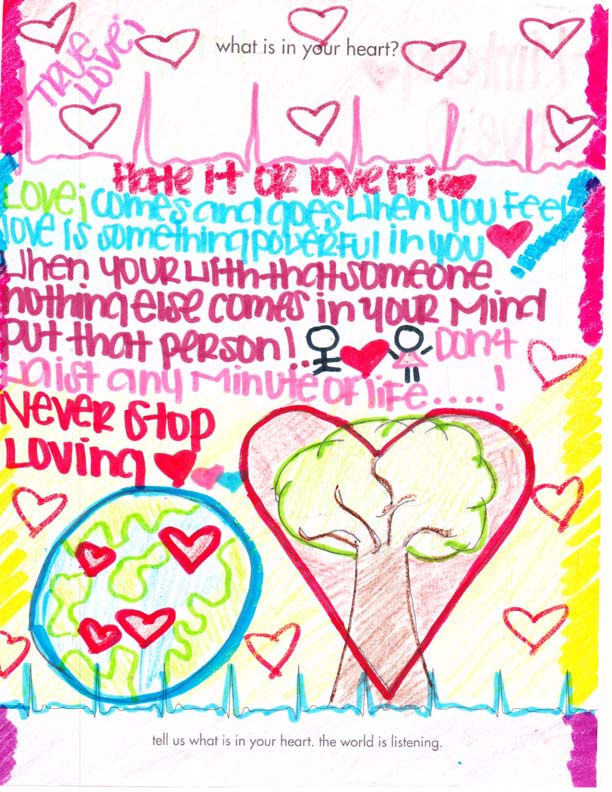 what is in your heart?
TRUE
LOVE¡
Hate it OR love it¡
Love¡ comes and goes when you Feel
love is something powerful in you
When your with that someone
nothing else comes in your Mind
but that person!. Don4
waist any Minute of life....!
Never stop
Loving
tell us what is in your heart. the world is listening.